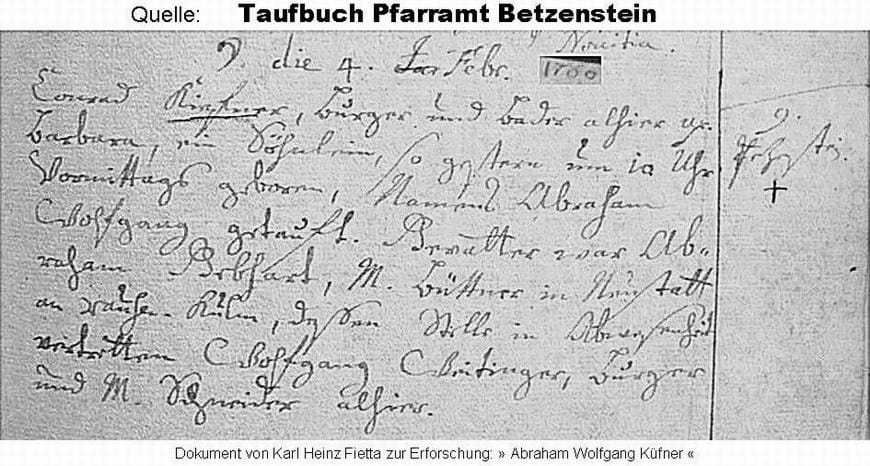 Quelle: Taufbuch Pfarramt Betzenstein
9. die 4. Febr. 1700
Conrad Kieffner, Burger und Bader alhier ux.
Barbara, ein Söhnlein, so gestern um 10 Uhr
Vormittags geboren, Namens Abraham
Wolfgang getauft. Gevatter war Ab-
raham Gebhart, M. Büttner in Neustatt
am rauhen Kulm, dessen Stelle in Abwesenheit
vertretten Wolfgang Weitinger, Burger
und M. Schneider alhier.
9.
+
Dokument von Karl Heinz Fietta zur Erforschung: » Abraham Wolfgang Küfner «